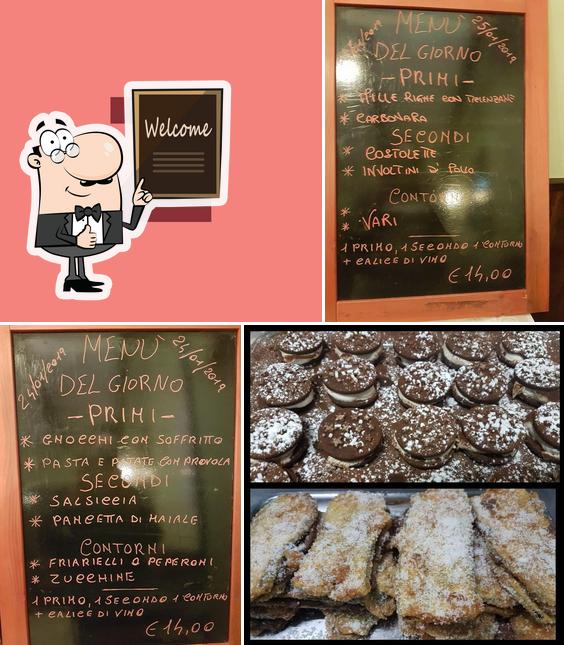 Welcome
MENÙ
25/01/2019
DEL GIORNO
- PRIMI -
* MILLE RIGHE CON MELENZANE
* CARBONARA
SECONDI
* COSTOLETTE
* INVOLTINI D' POLLO
CONTORNI
*
* VARI
1 PRIMO, 1 SECONDO 1 CONTORNO
+ CALICE DI VINO
€ 14,00
MENÙ
24/01/2019
24/01/2019
DEL GIORNO
- PRIMI -
* GNOCCHI CON SOFFRITTO
* PASTA E PATATE CON PROVOLA
SECONDI
* SALSICCIA
* PANCETTA DI MAIALE
CONTORNI
* FRIARIELLI O PEPERONI
* ZUCCHINE
1 PRIMO, 1 SECONDO 1 CONTORNO
+ CALICE DI VINO
€ 14,00